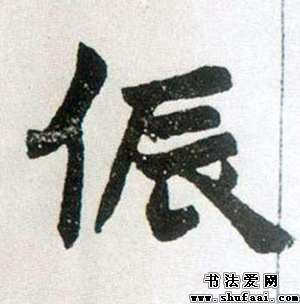 侲
书法爱网
www.shufaai.com